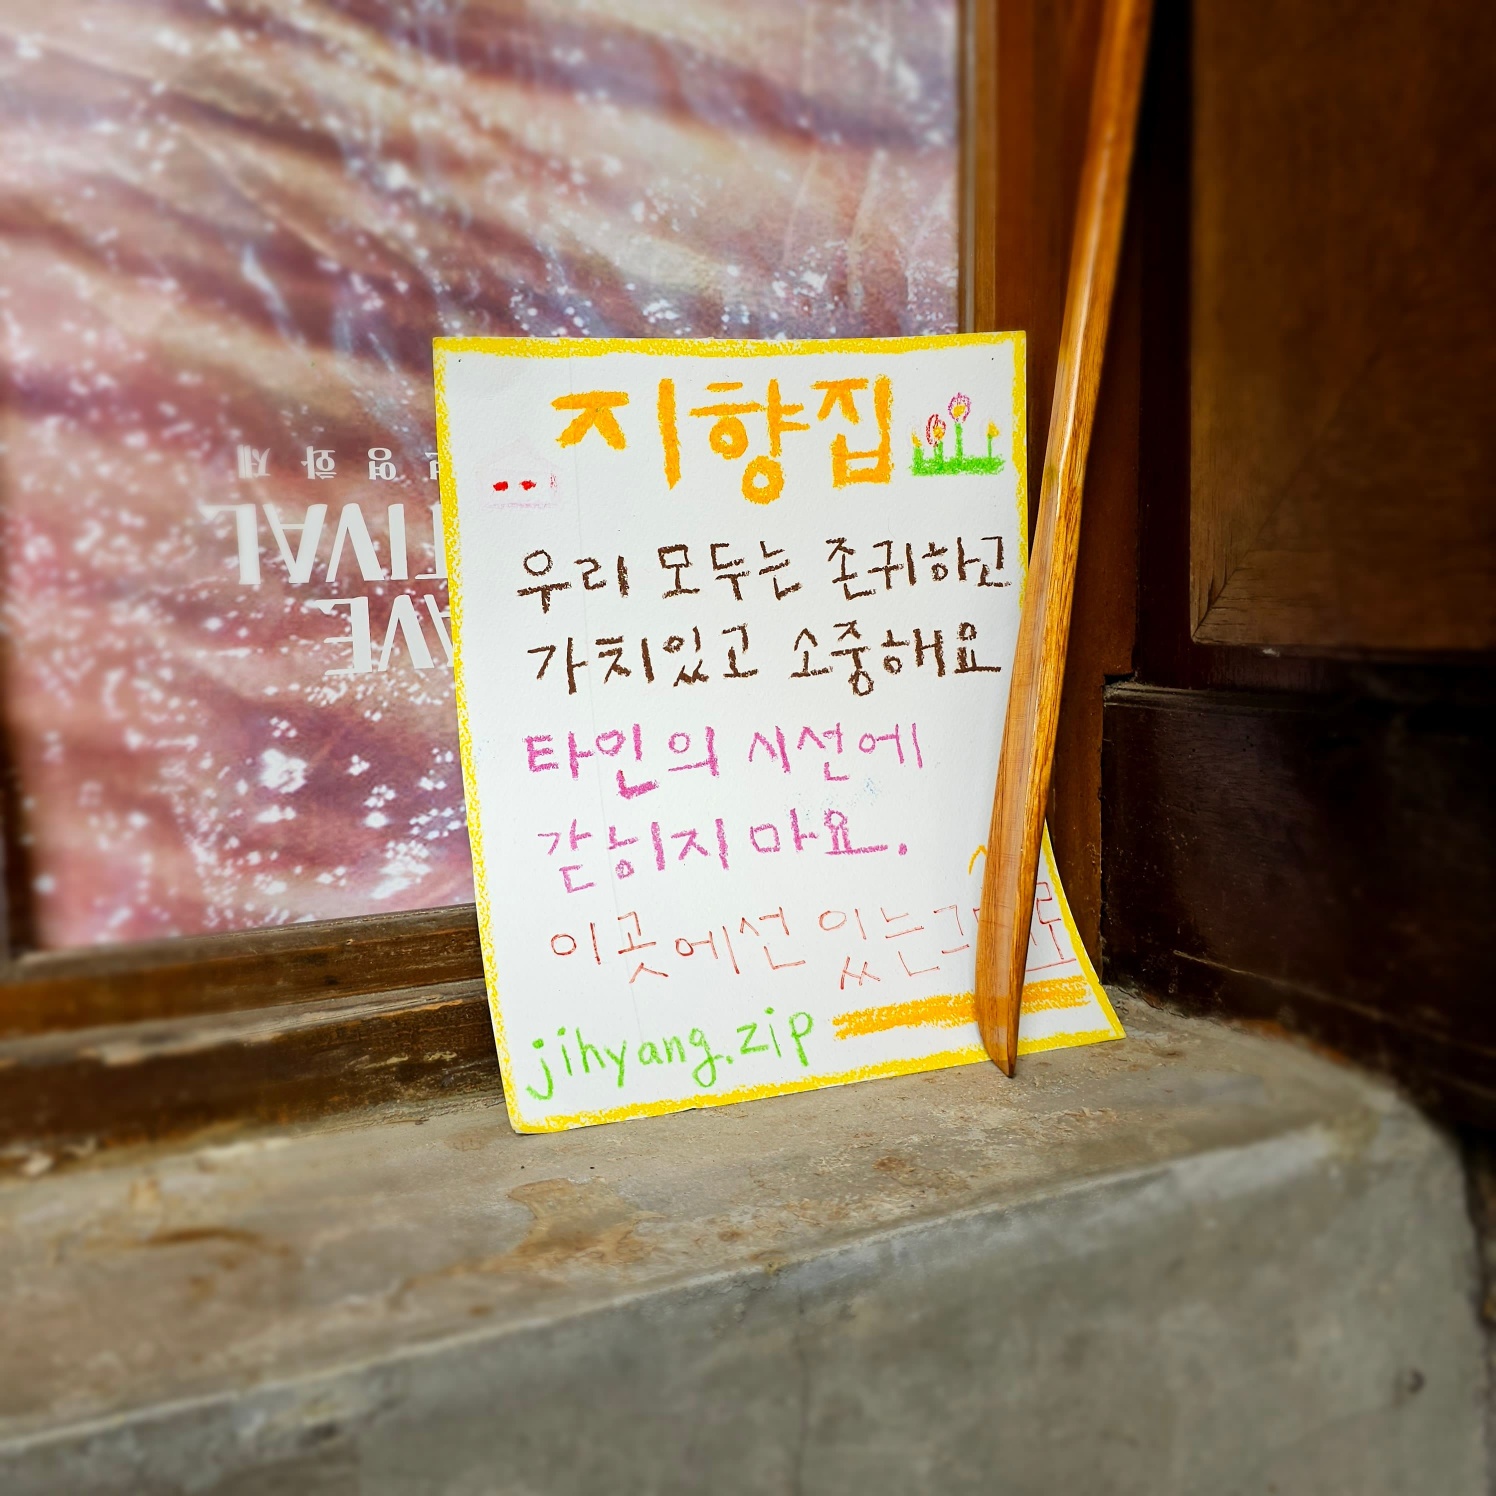 지향집
우리 모두는 존귀하고
가치있고 소중해요
타인의 시선에
갇히지 마요.
이곳에선 있는
jihyang.zip
영화제
TIVAL
AVE